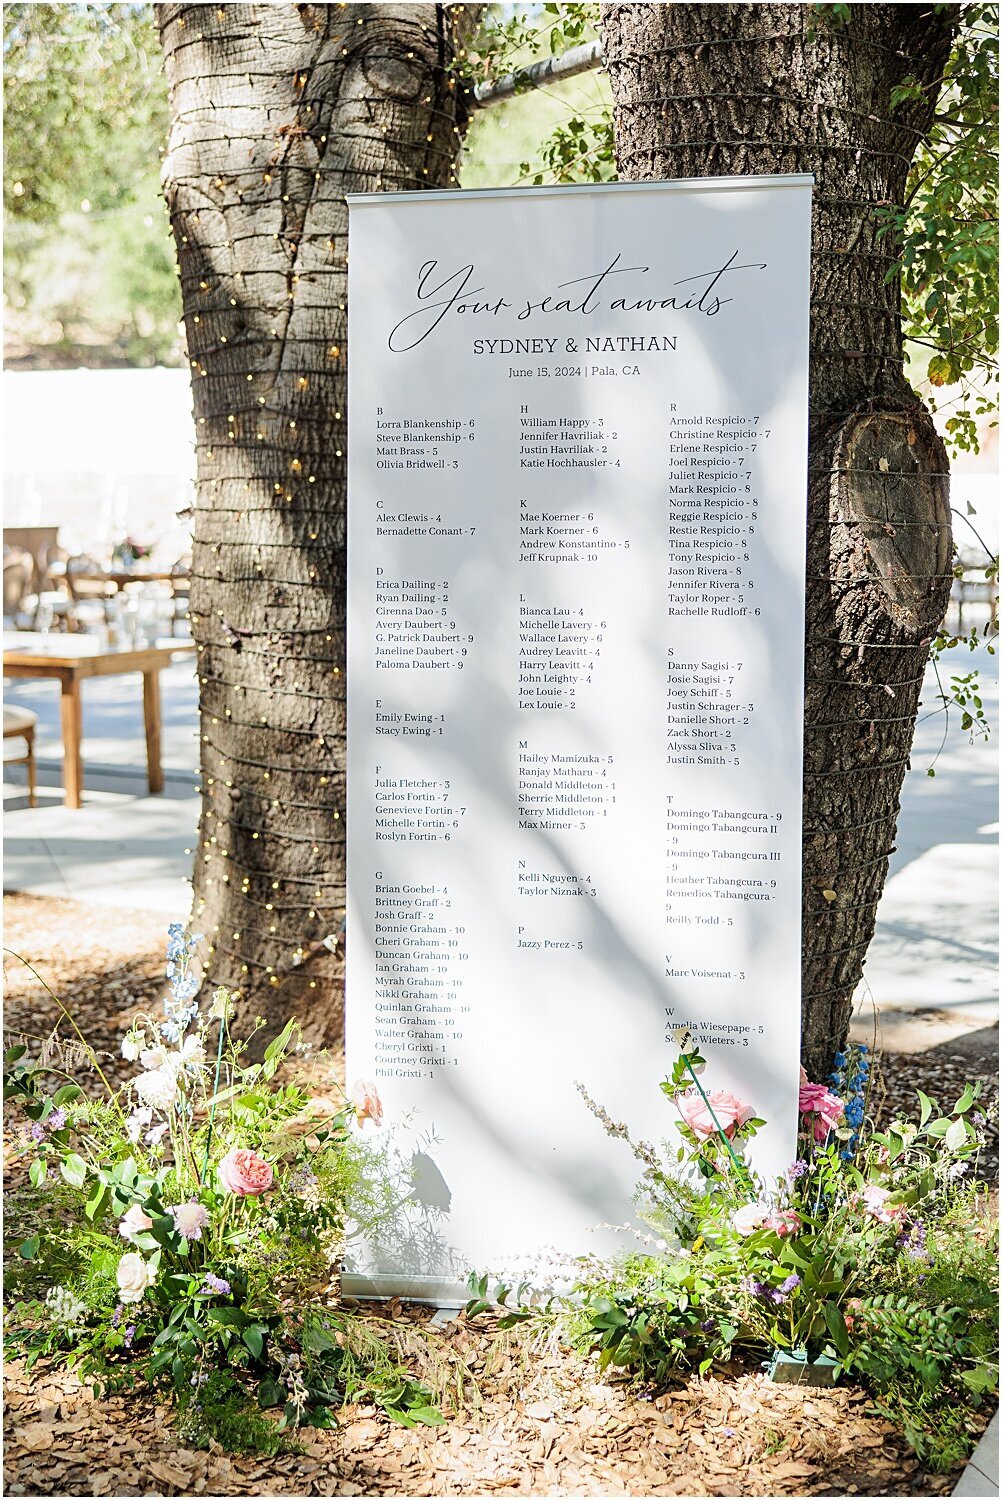 Your seat awaits
SYDNEY & NATHAN
June 15, 2024 | Pala, CA
B
Lorra Blankenship - 6
Steve Blankenship - 6
Matt Brass - 5
Olivia Bridwell - 3
C
Alex Clewis - 4
Bernadette Conant - 7
D
Erica Dailing - 2
Ryan Dailing - 2
Cirenna Dao - 5
Avery Daubert - 9
G. Patrick Daubert - 9
Janeline Daubert - 9
Paloma Daubert - 9
E
Emily Ewing - 1
Stacy Ewing - 1
F
Julia Fletcher - 3
Carlos Fortin - 7
Genevieve Fortin - 7
Michelle Fortin - 6
Roslyn Fortin - 6
G
Brian Goebel - 4
Brittney Graff - 2
Josh Graff - 2
Bonnie Graham - 10
Cheri Graham - 10
Duncan Graham - 10
Ian Graham - 10
Myrah Graham - 10
Nikki Graham - 10
Quinlan Graham - 10
Sean Graham - 10
Walter Graham - 10
Cheryl Grixti - 1
Courtney Grixti - 1
Phil Grixti - 1
H
William Happy - 3
Jennifer Havriliak - 2
Justin Havriliak - 2
Katie Hochhausler - 4
K
Mae Koerner - 6
Mark Koerner - 6
Andrew Konstantino - 5
Jeff Krupnak - 10
L
Bianca Lau - 4
Michelle Lavery - 6
Wallace Lavery - 6
Audrey Leavitt - 4
Harry Leavitt - 4
John Leighty - 4
Joe Louie - 2
Lex Louie - 2
M
Hailey Mamizuka - 5
Ranjay Matharu - 4
Donald Middleton - 1
Sherrie Middleton - 1
Terry Middleton - 1
Max Mirner - 3
N
Kelli Nguyen - 4
Taylor Niznak - 3
P
Jazzy Perez - 5
R
Arnold Respicio - 7
Christine Respicio - 7
Erlene Respicio - 7
Joel Respicio - 7
Juliet Respicio - 7
Mark Respicio - 8
Norma Respicio - 8
Reggie Respicio - 8
Restie Respicio - 8
Tina Respicio - 8
Tony Respicio - 8
Jason Rivera - 8
Jennifer Rivera - 8
Taylor Roper - 5
Rachelle Rudloff - 6
S
Danny Sagisi - 7
Josie Sagisi - 7
Joey Schiff - 5
Justin Schrager - 3
Danielle Short - 2
Zack Short - 2
Alyssa Sliva - 3
Justin Smith - 5
T
Domingo Tabangcura - 9
Domingo Tabangcura II
- 9
Domingo Tabangcura III
- 9
Heather Tabangcura - 9
Remedios Tabangcura -
9
Reilly Todd - 5
V
Marc Voisenat - 3
W
Amelia Wiesepape - 5
Wieters - 3
Yang